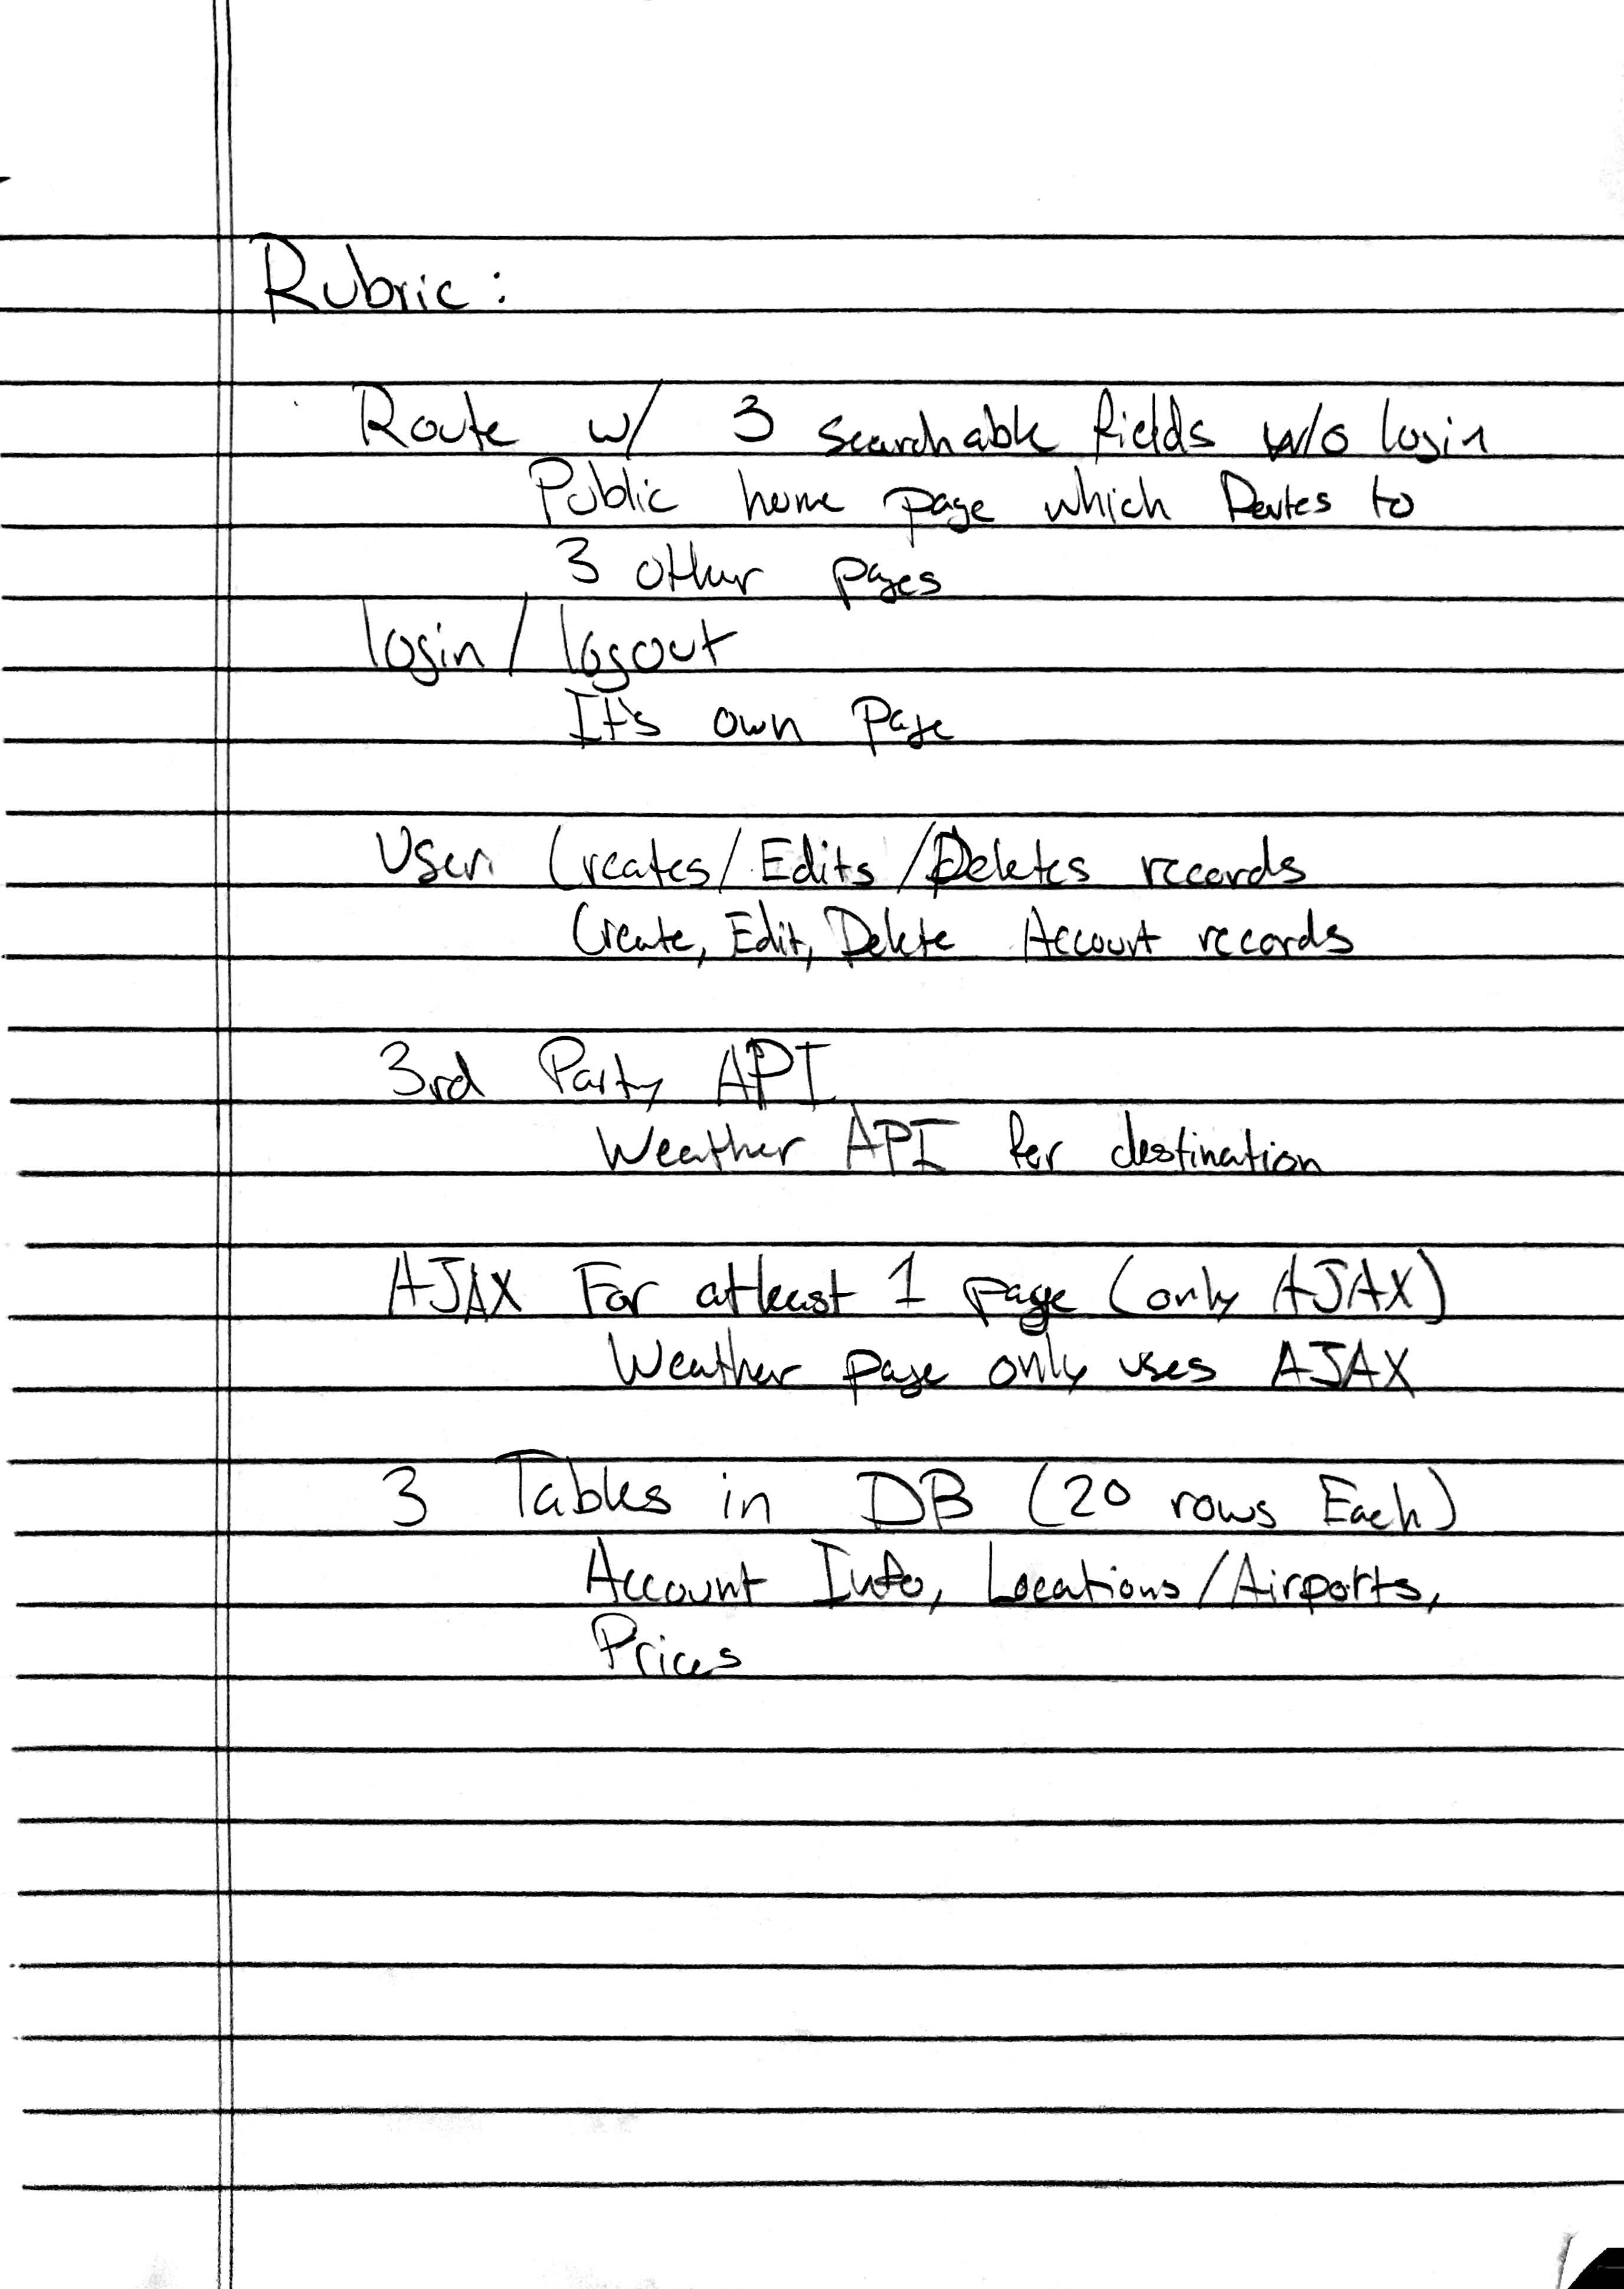 Rubric:
Route w/ 3 searchable fields w/o login
Public home page which Routes to
3 other pages
login / logout
It's own page
User Creates/Edits/Deletes records
Create, Edit, Delete Account records
3rd Party API
Weather API for destination
AJAX For atleast 1 page (only AJAX)
Weather page only uses AJAX
3 Tables in DB (20 rows Each)
Account Info, Locations/Airports,
Prices